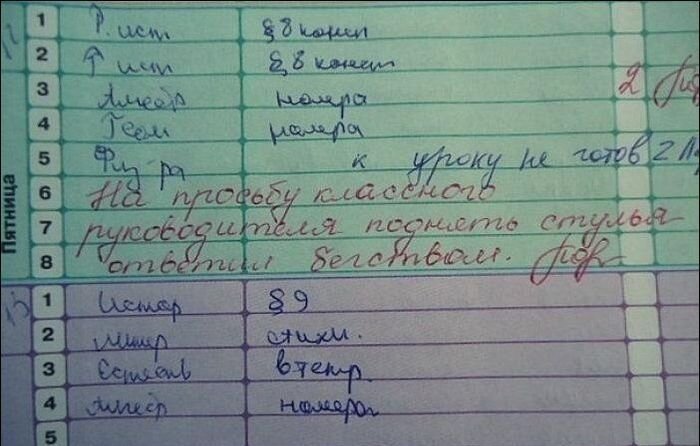 Пятница
1 Р. ист §8 консп
2 Р ист §8 конспт
3 Алгебр номера 2
4 Геом номера
5 Физ-ра к уроку не готов 2
6 На просьбу классного
7 руководителя поднять стулья
8 ответил бегством.
1 Истор §9
2 Литер стихи.
3 Естеств в тетр.
4 Алгебр номера
5